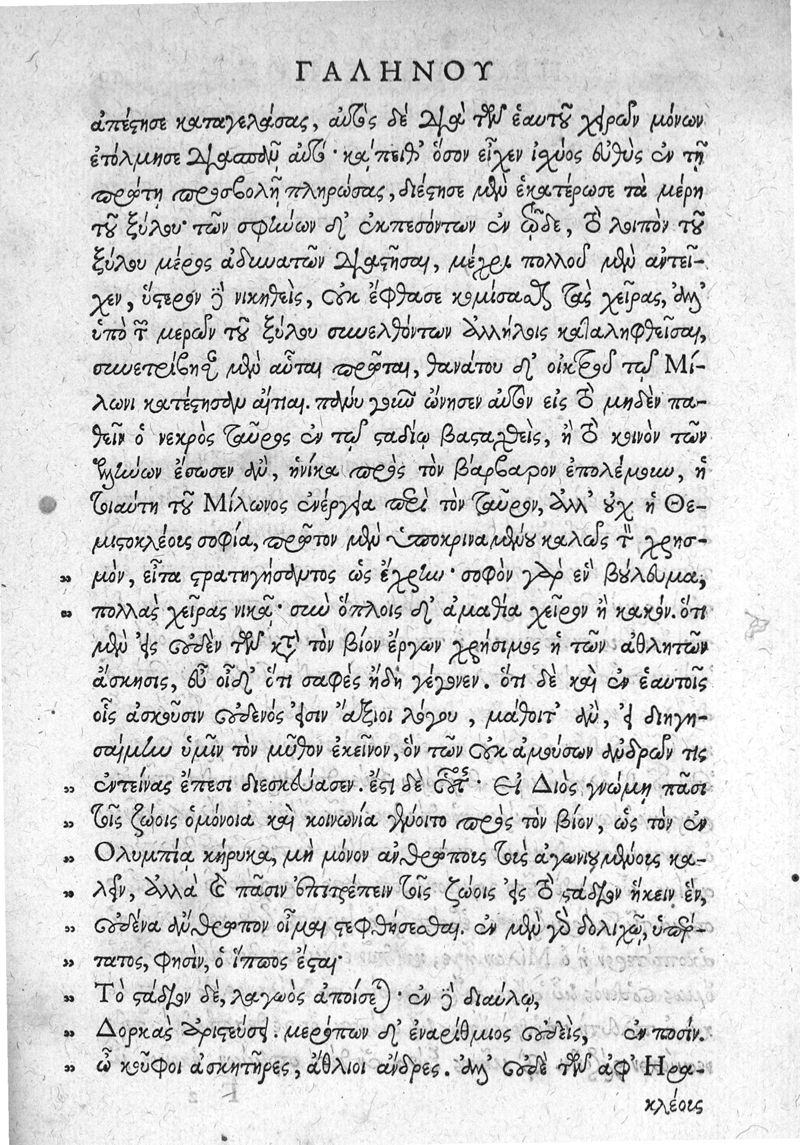 ΓΑΛΗΝΟΥ
ἀπέστησε καταγελάσας, αὐτὸς δὲ διὰ τῶν ἑαυτοῦ χειρῶν μόνων
ἐτόλμησε διασπᾶν αὐτό· κἄπειθ' ὅσον εἶχεν ἰσχύος εὐθὺς ἐν τῇ
πρώτῃ προσβολῇ πληρώσας, διέστησε μὲν ἑκατέρωσε τὰ μέρη
τοῦ ξύλου· τῶν σφηνῶν δ' ἐκπεσόντων ἐν τῷδε, τὸ λοιπὸν τοῦ
ξύλου μέρος ἀδυνατῶν διαστῆσαι, μέχρι πολλοῦ μὲν ἀντεῖ-
χεν, ὕστερον δὲ νικηθεὶς, οὐκ ἔφθασε κομίσασθαι τὰς χεῖρας, ἀλλ'
ὑπὸ τῶν μερῶν τοῦ ξύλου συνελθόντων ἀλλήλοις καταληφθεῖσαι,
συνετρίβησαν μὲν αὗται πρῶται, θανάτου δ' οἰκτροῦ τῷ Μί-
λωνι κατέστησαν αἴτιαι. πάνυ γοῦν ὤνησεν αὐτὸν εἰς τὸ μηδὲν πα-
θεῖν ὁ νεκρὸς ταῦρος ἐν τῷ σταδίῳ βασταχθεὶς, ἢ τὸ κοινὸν τῶν
Ἑλλήνων ἔσωσεν ἂν, ἡνίκα πρὸς τὸν βάρβαρον ἐπολέμουν, ἡ
τοιαύτη τοῦ Μίλωνος ἐνέργεια περὶ τὸν ταῦρον, ἀλλ' οὐχ ἡ Θε-
μιστοκλέους σοφία, πρῶτον μὲν ὑποκριναμένου καλῶς τὸν χρησ-
μὸν, εἶτα στρατηγήσαντος ὡς ἐχρῆν· σοφὸν γὰρ ἓν βούλευμα,
πολλὰς χεῖρας νικᾷ· σὺν ὅπλοις δ' ἀμαθία χεῖρον ἢ κακόν. ὅτι
μὲν εἰς οὐδὲν τῶν κατὰ τὸν βίον ἔργων χρήσιμος ἡ τῶν ἀθλητῶν
ἄσκησις, εὖ οἶδ' ὅτι σαφὲς ἤδη γέγονεν. ὅτι δὲ καὶ ἐν ἑαυτοῖς
οἷς ἀσκοῦσιν οὐδενός εἰσιν ἄξιοι λόγου, μάθοιτ' ἂν, εἰ διηγη-
σαίμην ὑμῖν τὸν μῦθον ἐκεῖνον, ὃν τῶν οὐκ ἀμούσων ἀνδρῶν τις
ἐντείνας ἔπεσι διεσκεύασεν. ἔστι δὲ οὗτος· Εἰ Διὸς γνώμῃ πᾶσι
τοῖς ζώοις ὁμόνοια καὶ κοινωνία γένοιτο πρὸς τὸν βίον, ὡς τὸν ἐν
Ὀλυμπίᾳ κήρυκα, μὴ μόνον ἀνθρώποις τοῖς ἀγωνιουμένοις κα-
λεῖν, ἀλλὰ καὶ πᾶσιν ἐπιτρέπειν τοῖς ζώοις εἰς τὸ στάδιον ἥκειν ἓν,
οὐδένα ἄνθρωπον οἶμαι στεφθήσεσθαι. ἐν μὲν γὰρ δολιχῷ, ὑπέρ-
τατος, φησὶν, ὁ ἵππος ἔσται·
Τὸ στάδιον δὲ, λαγωὸς ἀποίσεται· ἐν δὲ διαύλῳ,
Δορκὰς ἀριστεύσει. μερόπων δ' ἐναρίθμιος οὐδεὶς, ἐν ποσίν.
ὢ κοῦφοι ἀσκητῆρες, ἄθλιοι ἄνδρες. ἀλλ' οὐδὲ τῶν ἀφ' Ἡρα-
κλέους